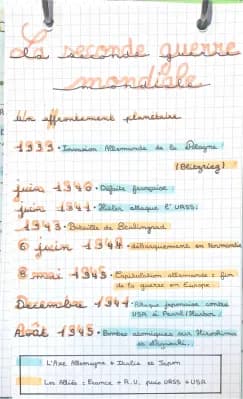 La seconde guerre
mondiale
Un affrontement planétaire
1939 • Invasion Allemande de la Pologne
(Blitzkrieg)
juin 1940 • Défaite française
juin 1941 • Hitler attaque l'URSS.
1943 • Bataille de Stalingrad
6 juin 1944 • débarquement en Normandie
8 mai 1945 • Capitulation allemande : fin
de la guerre en Europe
Décembre 1941 • Attaque japonaise contre
USA à Pearl Harbor
Août 1945 • Bombes atomiques sur Hiroshima
et Nagasaki.
L'Axe Allemagne + Italie et Japon
Les Alliés : France + R.U, puis URSS + USA